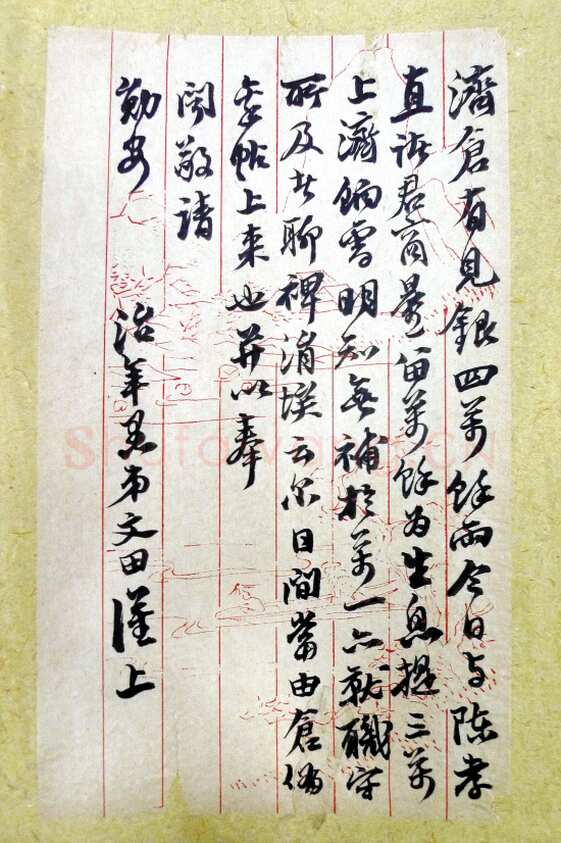 濟倉有見銀四萬餘兩今日与陳孝
直諸君商量留萬餘為生息提三萬
上濟餉需明知無補於萬一亦就職守
所及者聊裨涓埃云尔日間當由倉備
帖上来也并以奉
聞敬請
勛安
治年愚弟文田謹上